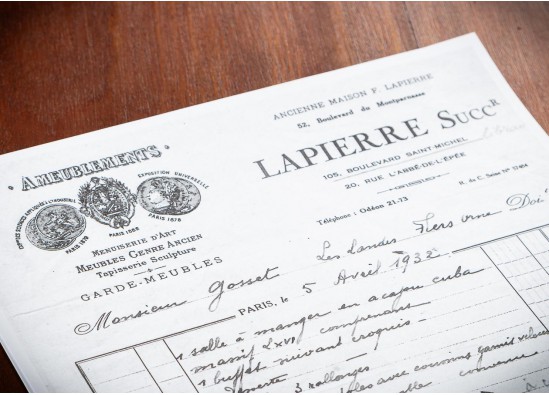 ANCIENNE MAISON F. LAPIERRE
52, Boulevard du Montparnasse
LAPIERRE SUCCR
105, BOULEVARD SAINT-MICHEL
20, RUE L'ABBÉ-DE-L'ÉPÉE
R. du C. Seine
Téléphone : Odéon 21-73
AMEUBLEMENTS
EXPOSITION UNIVERSELLE
PARIS 1878
PARIS 1878
MENUISERIE D'ART
MEUBLES GENRE ANCIEN
Tapisserie Sculpture
GARDE-MEUBLES
Les Landes
Monsieur Gosset
PARIS, le 5 Avril 1932
1 salle à manger en acajou cuba
massif LXVI comprenant
1 buffet suivant croquis -
3 rallonges -
avec garnis